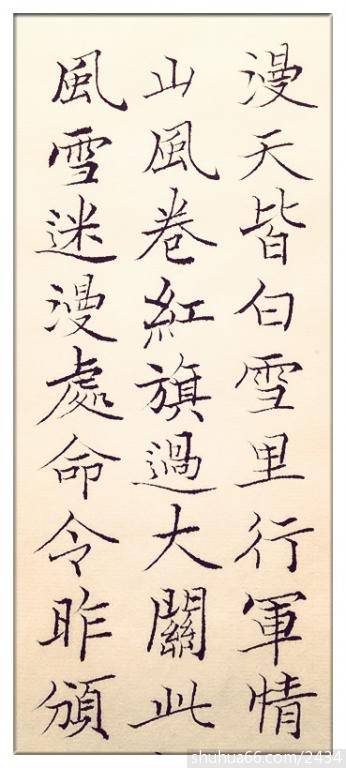 漫天皆白雪里行軍情
山風卷紅旗過大關此
風雪迷漫處命令昨頒
shuhua66.com/2434